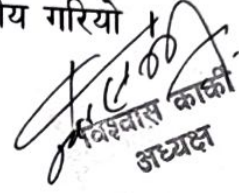 य गरियो
विश्वास कार्की
अध्यक्ष